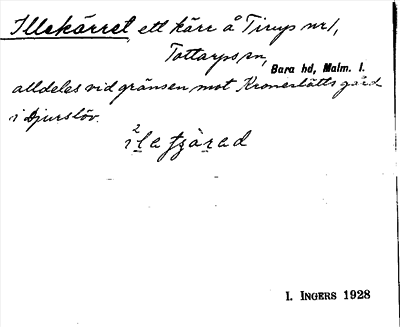 Illekärret, ett kärr å Tirup nr 1,
Tottarps sn, Bara hd, Malm. l.
alldeles vid gränsen mot Kronetslätts gård
i Djurslöv.
I. INGERS 1928